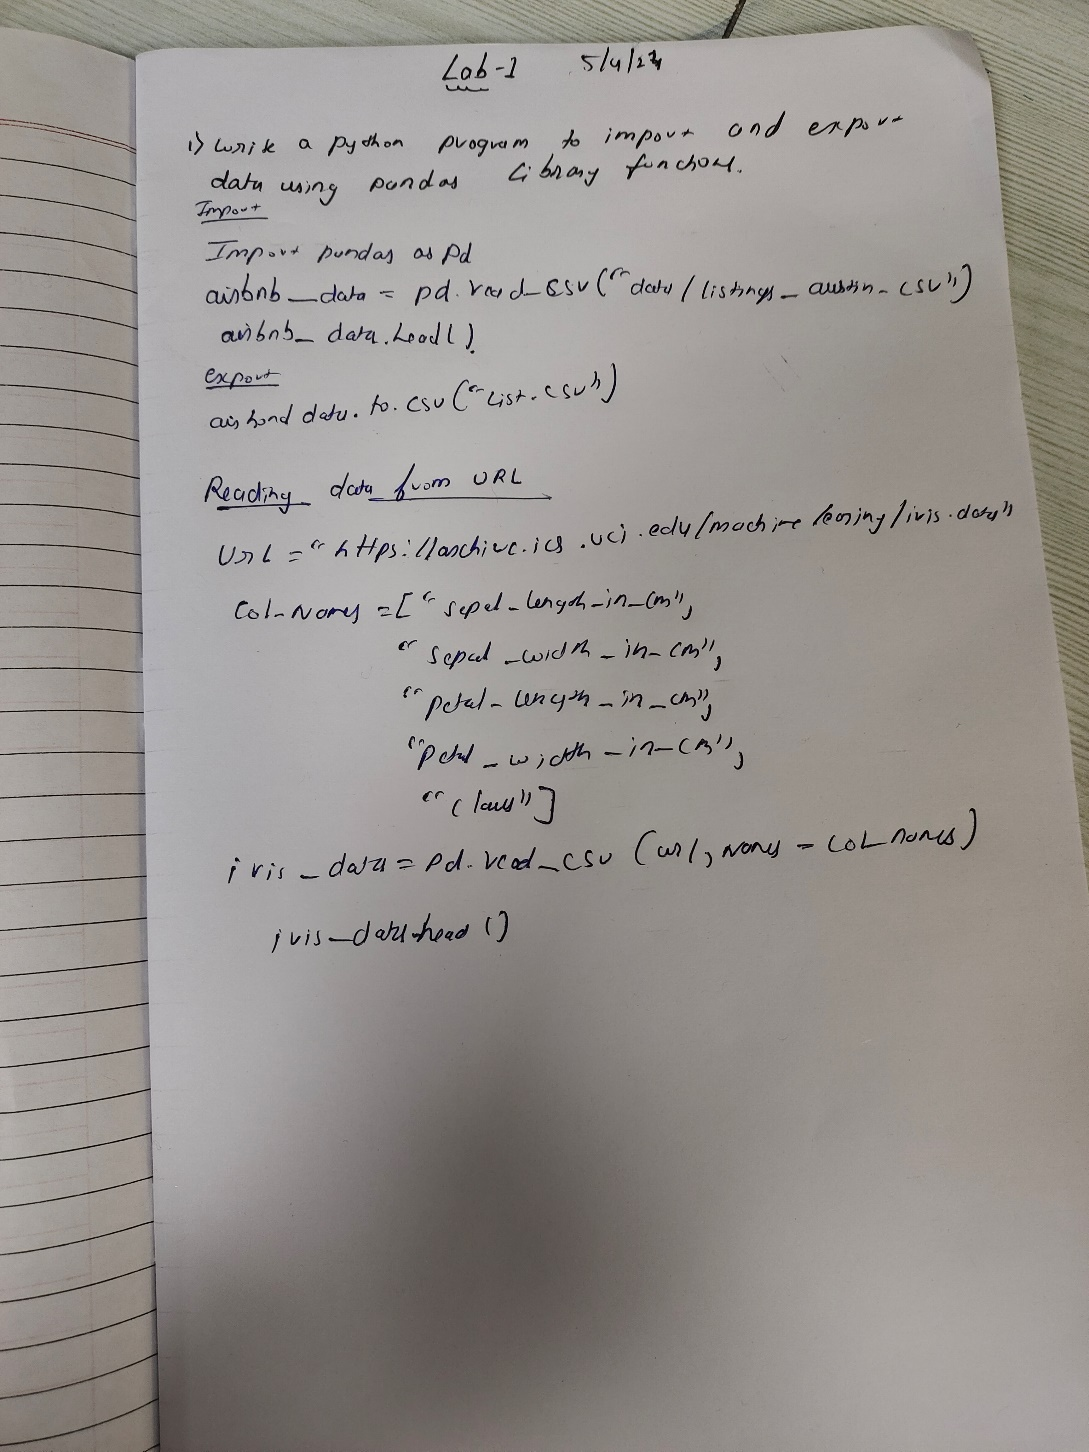 Lab-1 5/4/24
1) Write a python program to import and export
data using pandas Library functions.
Import
Import pandas as pd
airbnb_data = pd.read_csv("data/listings_austin.csv")
airbnb_data.head()
export
data.to.csv("List.csv")
Reading data from URL
Url = "https://archive.ics.uci.edu/machine learning/iris.data"
Col-Names = ["sepal_length_in_cm",
"sepal_width_in_cm",
"petal_length_in_cm",
"petal_width_in_cm",
"class"]
iris_data = pd.read_csv (url, names = col_names)
iris_data.head()